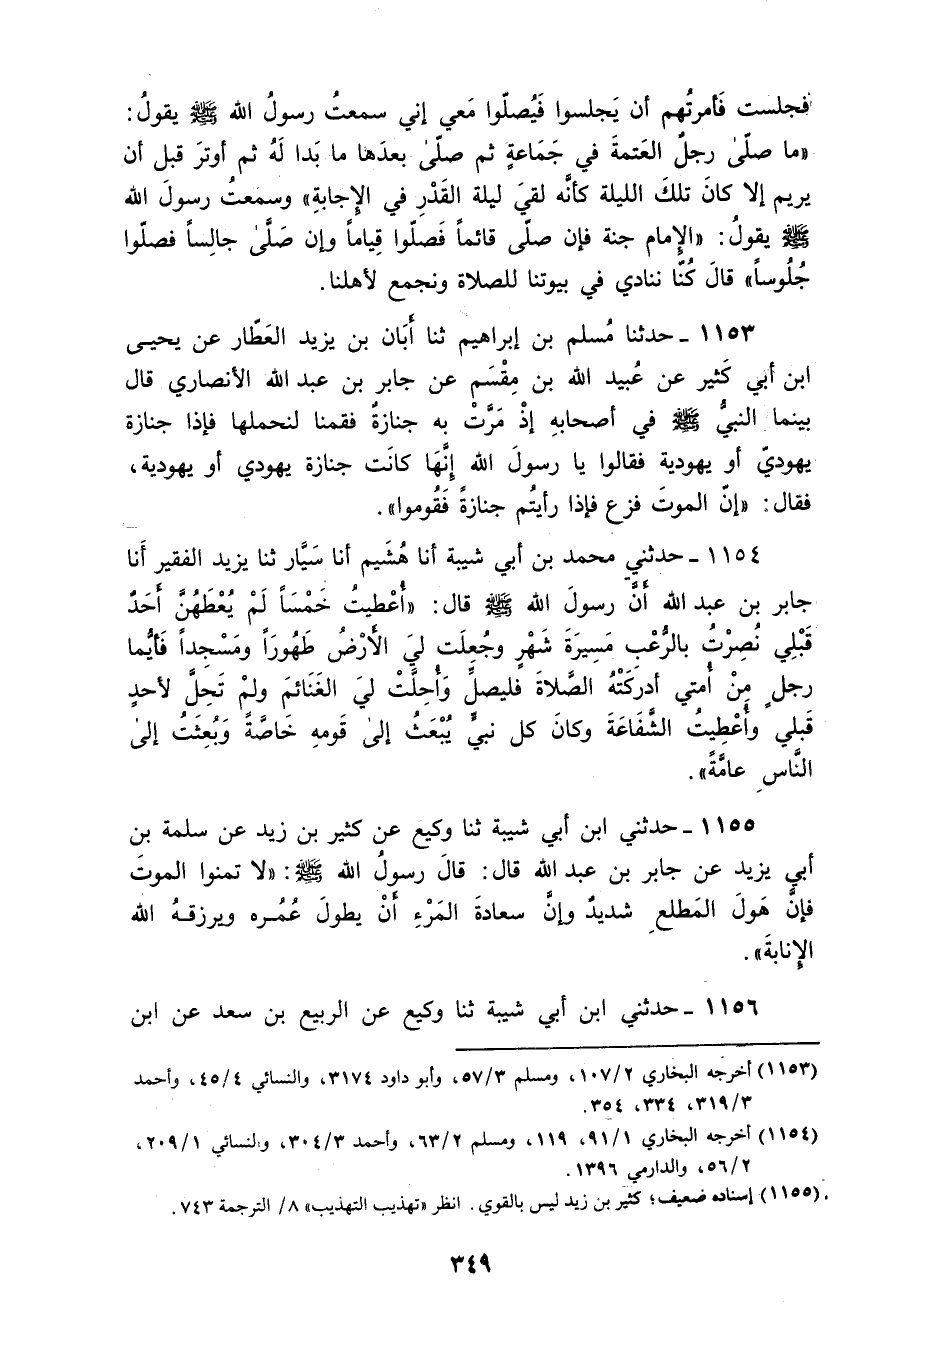 فجلست فَأمرتُهم أن يَجلسوا فَيُصلّوا مَعي إني سمعتُ رسولُ الله ﷺ يقولُ:
«ما صلّىٰ رجلٌ العَتمةَ في جَمَاعةٍ ثم صلّىٰ بعدَهَا ما بَدا لَهُ ثم أوترَ قبل أن
يريم إلا كانَ تلكَ الليلة كأنَّه لقيَ ليلة القَدْرِ في الإِجابةِ» وسمعتُ رسولَ الله
ﷺ يقولُ: «الإِمام جنة فإن صلّى قائماً فَصلّوا قِياماً وإن صَلَّىٰ جالِساً فصلّوا
جُلُوساً» قالَ كُنّا ننادي في بيوتنا للصلاة ونجمع لأهلنا.
١١٥٣ ـ حدثنا مُسلم بن إبراهيم ثنا أَبَان بن يزيد العَطّار عن يحيـى
ابن أبي كَثير عن عُبيد الله بن مِقْسَم عن جابر بن عبد الله الأنصاري قال
بينما النبيُّ ﷺ في أصحابهِ إذْ مَرَّتْ به جنازةٌ فقمنا لنحملها فإذا جنازة
يهوديّ أو يهودية فقالوا يا رسولَ الله إنَّهَا كانَت جنازة يهودي أو يهودية،
فقال: «إنّ الموتَ فزع فإذا رأيتُم جنازةً فَقُوموا».
١١٥٤ ـ حدثني محمد بن أبي شيبة أنا هُشَيم أنا سَيَّار ثنا يزيد الفقير أَنا
جابر بن عبد الله أَنَّ رسولَ الله ﷺ قال: «أُعْطيتُ خَمْسَاً لَمْ يُعْطَهُنَّ أَحَدٌ
قَبْلِي نُصِرْتُ بالرُّعْبِ مَسِيرَةَ شَهْرٍ وجُعِلَت ليَ الأَرْضُ طَهُورَاً ومَسْجداً فَأيُّما
رجلٍ مِنْ أُمتي أدركَتْهُ الصَّلاةَ فليصلِّ وَأُحِلَّتْ ليَ الغَنائمَ ولمْ تَحِلَّ لأحدٍ
قَبلي وأُعْطِيتُ الشَّفاعَةَ وكانَ كل نبيٍّ يُبْعَثُ إلىٰ قَومهِ خَاصَّةً وَبُعِثَتُ إلىٰ
النَّاسِ عامَّةً».
١١٥٥ ـ حدثني ابن أبي شيبة ثنا وكيع عن كثير بن زيد عن سلمة بن
أبي يزيد عن جابر بن عبد الله قال: قالَ رسولُ الله ﷺ: «لا تمنوا الموتَ
فإنَّ هَولَ المَطلعِ شديدٌ وإنَّ سعادةَ المَرْءِ أَنْ يطولَ عُمُـره ويرزقـهُ الله
الإِنابةَ».
١١٥٦ ـ حدثني ابن أبي شيبة ثنا وكيع عن الربيع بن سعد عن ابن
(١١٥٣) أخرجه البخاري ١٠٧/٢، ومسلم ٥٧/٣، وأبو داود ٣١٧٤، والنسائي ٤٥/٤، وأحمد
٣١٩/٣، ٣٣٤، ٣٥٤.
(١١٥٤) أخرجه البخاري ٩١/١، ١١٩، ومسلم ٦٣/٢، وأحمد ٣٠٤/٣، والنسائي ٢٠٩/١،
٥٦/٢، والدارمي ١٣٩٦.
(١١٥٥) إسناده ضعيف؛ كثير بن زيد ليس بالقوي. انظر «تهذيب التهذيب» ٨/ الترجمة ٧٤٣.
٣٤٩